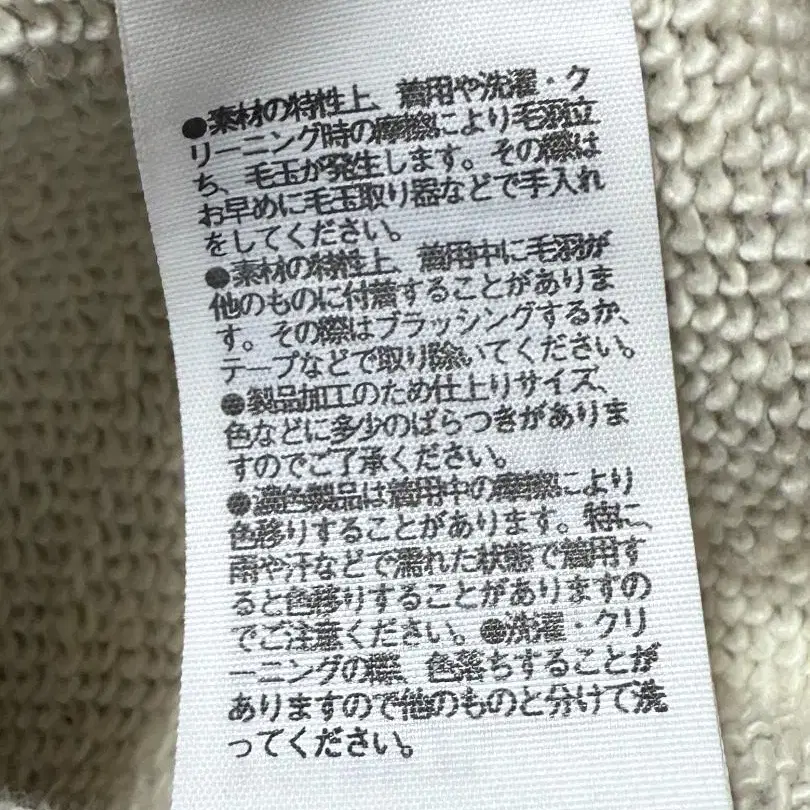 ●素材の特性上、着用や洗濯・ク
リーニング時の摩擦により毛羽立
ち、毛玉が発生します。その際は
お早めに毛玉取り器などで手入れ
をしてください。
●素材の特性上、着用中に毛羽が
他のものに付着することがありま
す。その際はブラッシングするか、
テープなどで取り除いてください。
●製品加工のため仕上りサイズ、
色などに多少のばらつきがありま
すのでご了承ください。
●濃色製品は着用中の摩擦により
色移りすることがあります。特に、
雨や汗などで濡れた状態で着用す
ると色移りすることがありますの
でご注意ください。●洗濯・クリ
ーニングの際、色落ちすることが
ありますので他のものと分けて洗
ってください。